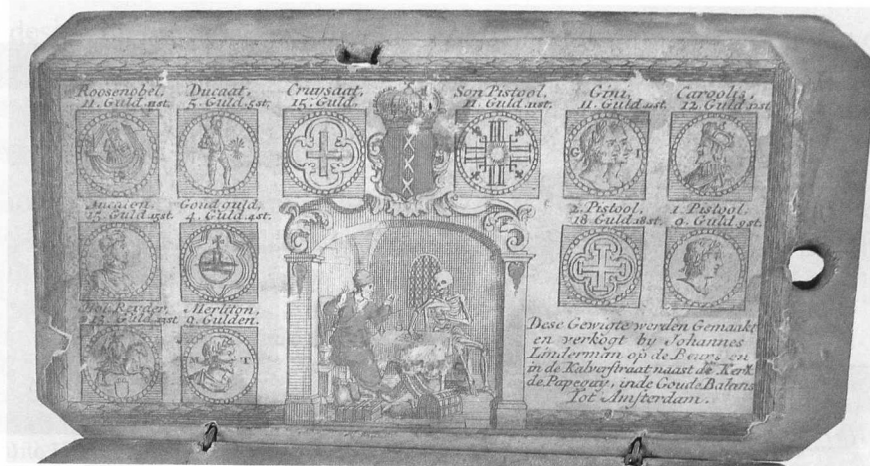 Roosenobel,
11. Guld. 11st.
Ducaat,
5. Guld. 5st.
Cruysaat,
15. Guld.
Son Pistool.
11. Guld. 11st.
Gini,
11. Guld. 11st.
Caroolis,
12. Guld. 12st.
G I
Aucalen,
15. Guld. 15st.
Goud guld,
4. Guld. 4st.
2. Pistool,
18 Guld. 18st.
1. Pistool,
9. Guld. 9st.
Hol. Reyder,
Guld.
Merliton,
9. Gulden.
M T
Dese Gewigte werden Gemaakt
en verkogt by Johannes
Linderman op de Beurs en
in de Kalverstraat naast de Kerk
de Papegay, in de Goude Balans
Tot Amsterdam.